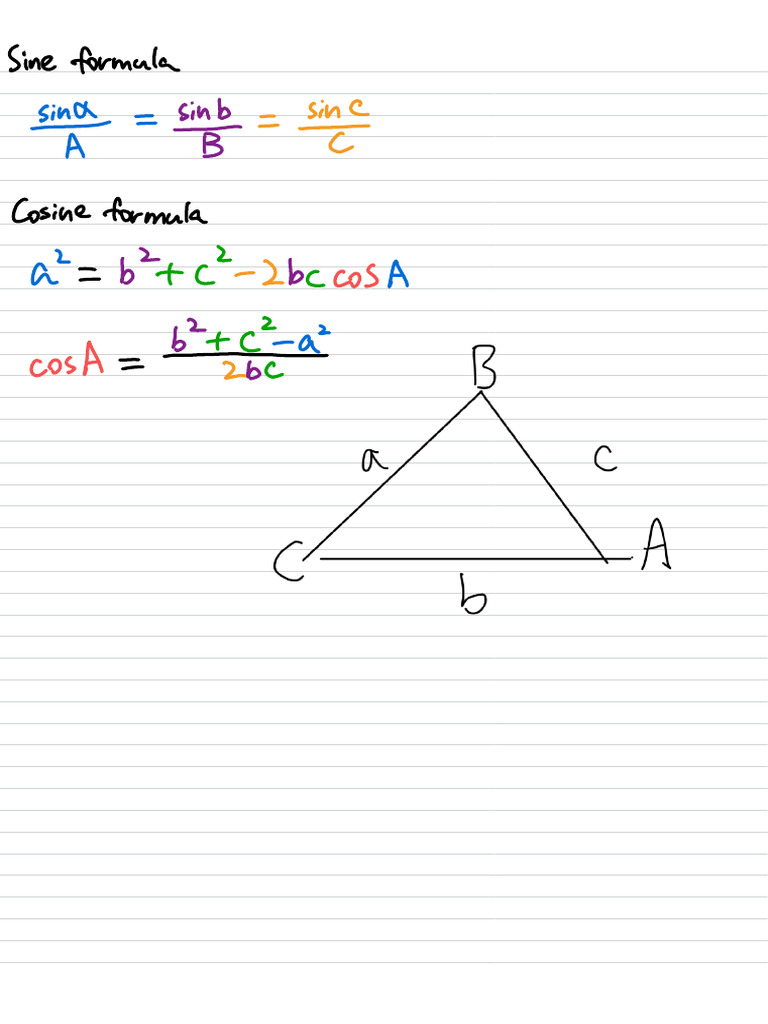 Sine formula
sina/A = sinb/B = sinc/C
Cosine formula
a² = b² + c² - 2bc cosA
cosA = (b² + c² - a²)/2bc
B
a
c
C
A
b